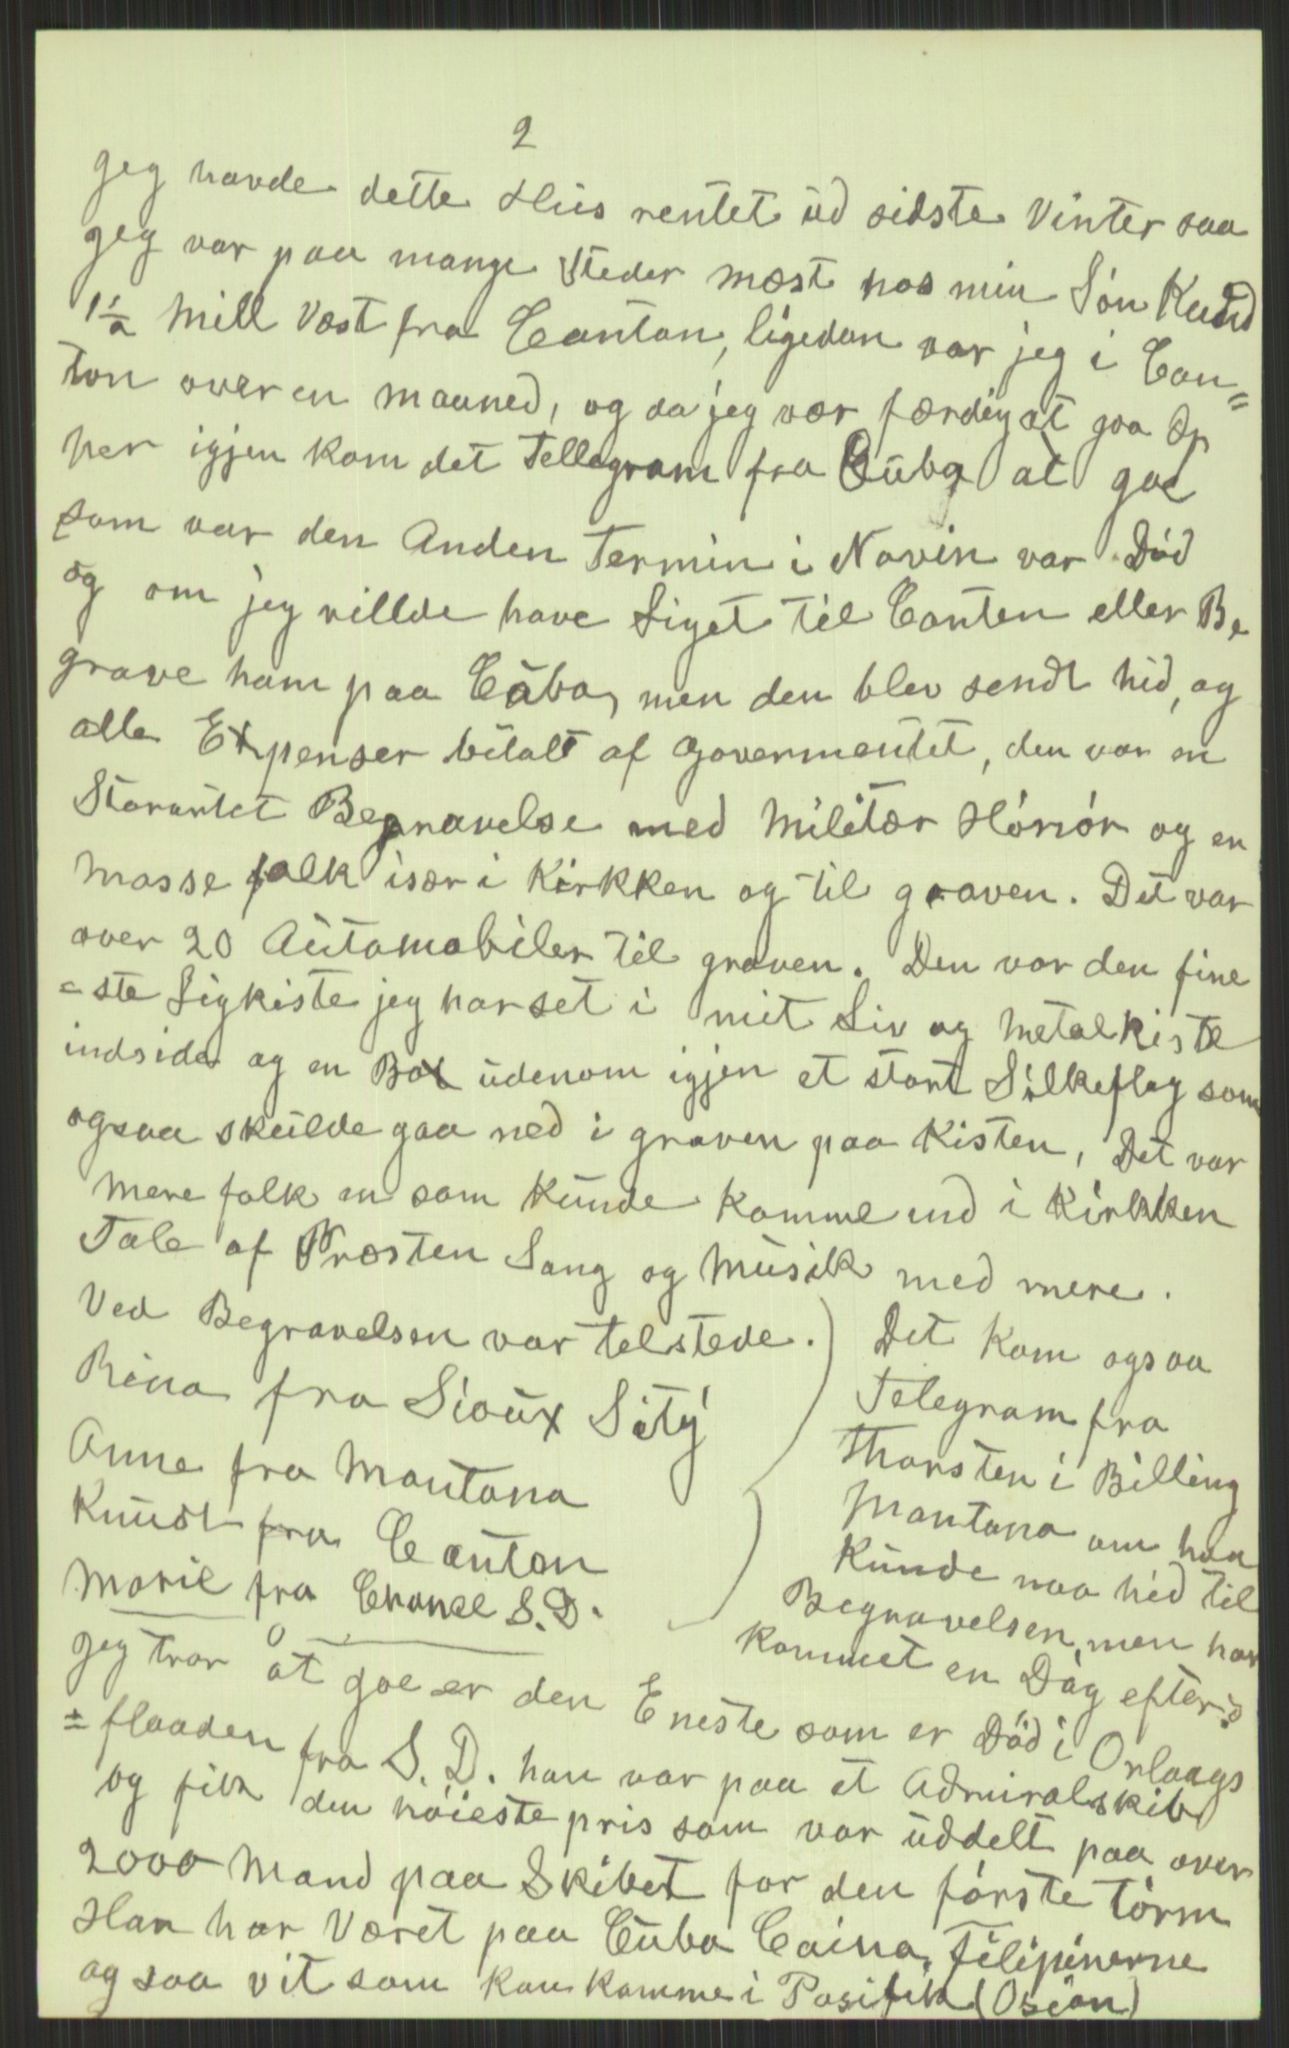 2
Jeg havde dette Hus rentet ud sidste Vinter saa
jeg var paa mange Steder mæst hos min Søn Knud
1½ Mill Væst fra Canton, ligedan var jeg i Can=
ton over en maaned, og da jeg var færdig at gaa Op
her igjen kom det Tellegram fra Cuba at goe
som var den Anden Termin i Navin var Død
og om jeg villde have Liget til Canton eller Be
grave ham paa Cuba, men den blev sendt hid, og
alle Expenser bitalt af Govermentet, den var en
Storartet Begravelse med Militær Honør og en
masse folk især i Kirkken og til graven. Det var
over 20 Automobiler til graven. Den var den fine
=ste Ligkiste jeg har set i mit Liv og Metalkiste
indside og en Box udenom igjen et stort Silkeflag som
ogsaa skulde gaa ned i graven paa Kisten, Det var
mere folk en som kunde komme ind i Kirkken
Tale af Præsten Sang og Musik med mere.
Ved Begravelsen var telstede.
Rina fra Sioux Sity
Anne fra Montana
Knudt fra Canton
Marie fra Chance S.D.
Det kom ogsaa
Telegram fra
Thorsten i Billing
Montana om han
kunde naa hid til
Begravelsen, men har
kommet en Dag efter.
Jeg tror at goe er den Eneste som er Død i Orlaags
=flaaden fra S.D. han var paa et Admiralskib
og fik den høieste pris som var uddelt paa over
2000 Mand paa Skibet for den første törm
Han har Været paa Cuba Caina, Filipinerne
og saa vit som kan komme i Pasifik (Osian)